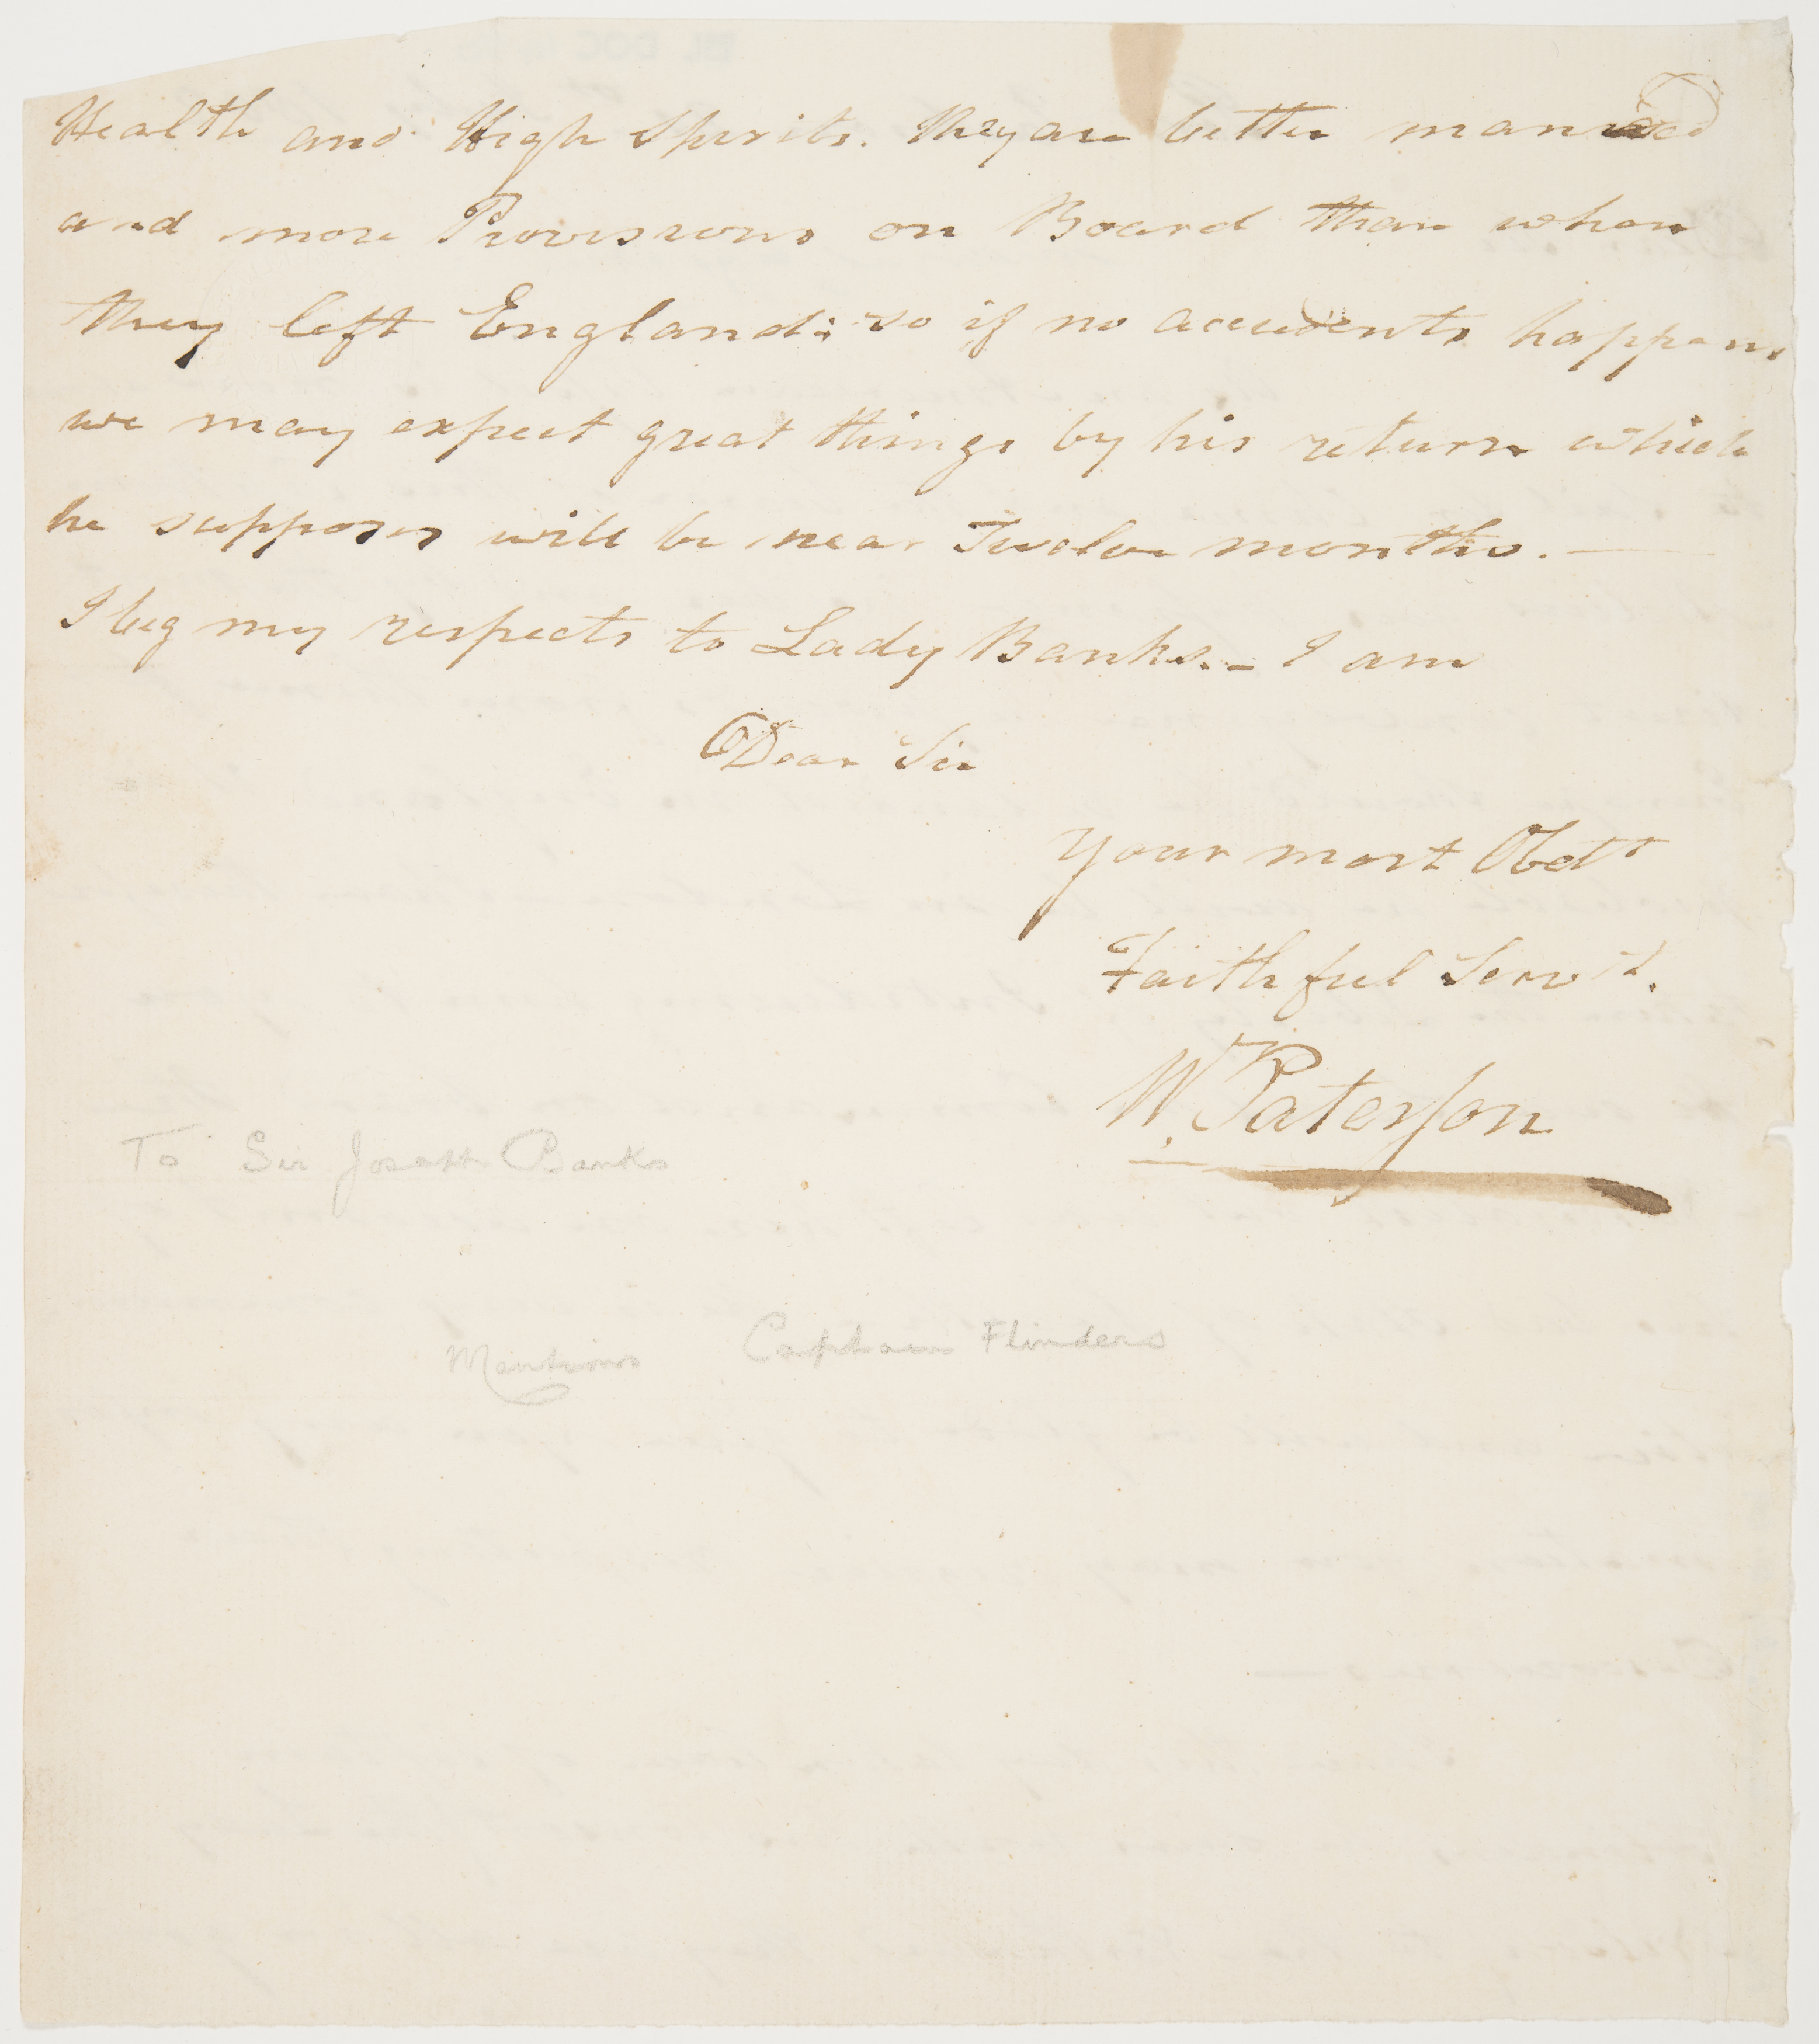 Health and High Spirits. They are better manned
and more Provisions on Board than when
they left England: so if no accidents happens
we may expect great things by his return which
he supposes will be near Twelve months. —
I beg my respects to Lady Banks. – I am
Dear Sir
Your most Obedt
Faithful Servt.
W. Paterson
To Sir Joseph Banks
Mentions Captain Flinders